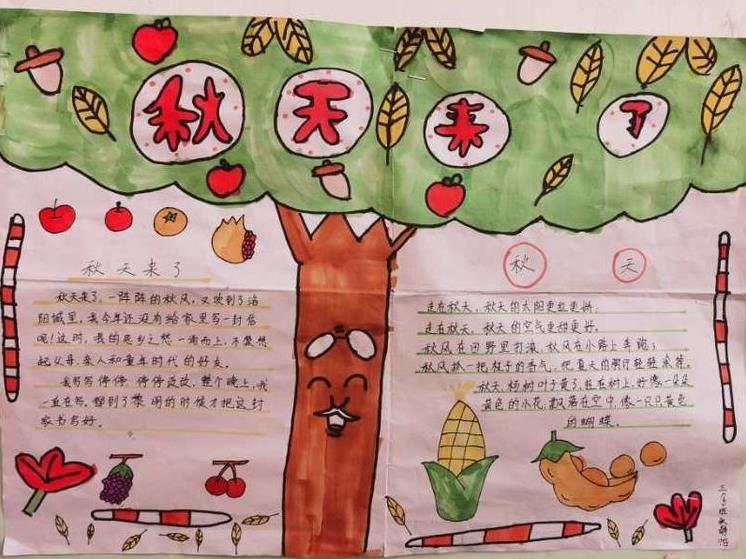 秋天来了
秋天来了
秋天来了，一阵阵的秋风，又吹到了洛
阳城里，我今年还没有给家里写一封信
呢！这时，我的思乡之愁一涌而上，不禁想
起父母、亲人和童年时代的好友。
我写写停停，停停改改，整个晚上，我
一直在写，等到了黎明的时候才把这封
家书写好。
秋天
走在秋天，秋天的太阳更红更娇，
走在秋天，秋天的空气更甜更好。
秋风在田野里打滚，秋风在小路上奔跑，
秋风抓一把桂子的香气，把夏天的
秋天，杨树叶子黄了，挂在树上，好像一朵朵
黄色的小花，飘落在空中，像一只只黄色
的蝴蝶。